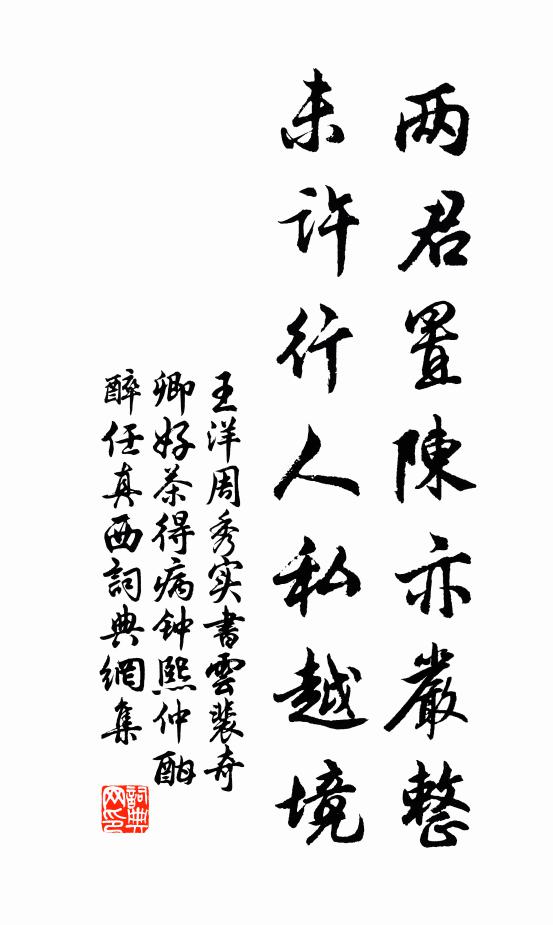 两君置陳亦嚴整
未許行人私越境
王洋周秀实書雲裴奇
卿好茶得病钟熙仲酣
醉任真西詞典網集
詞典网印